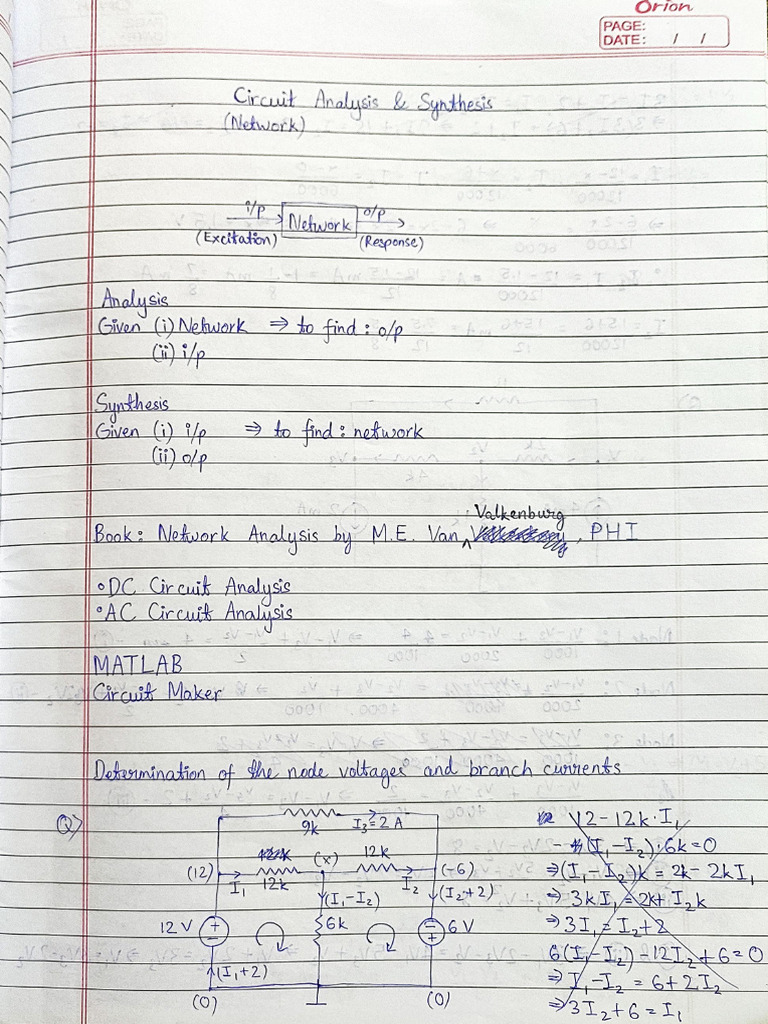 Orion
PAGE:
DATE: / /
Circuit Analysis & Synthesis
(Network)
i/p Network o/p
(Excitation) (Response)
Analysis
Given (i) Network ⇒ to find: o/p
(ii) i/p
Synthesis
Given (i) i/p ⇒ to find: network
(ii) o/p
Valkenburg
Book: Network Analysis by M.E. Van , PHI
• DC Circuit Analysis
• AC Circuit Analysis
MATLAB
Circuit Maker
Determination of the node voltages and branch currents
Q>
9k I₃=2 A
(12) I₁ 12k (x) 12k I₂ (-6)
(I₁-I₂) (I₂+2)
12 V + − 6k − + 6 V
(I₁+2)
(0) (0)
12 - 12k·I₁
-(I₁-I₂)·6k=0
⇒(I₁-I₂)k = 2k-2kI₁
⇒ 3kI₁ = 2k+I₂k
⇒ 3I₁ = I₂+2
6(I₁-I₂)-12I₂+6=0
⇒ I₁-I₂ = 6+2I₂
⇒ 3I₂+6 = I₁